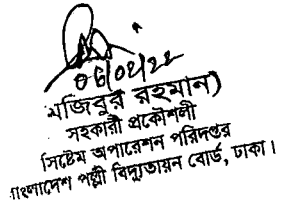 ০৬/০২/২২
মজিবুর রহমান)
সহকারী প্রকৌশলী
সিষ্টেম অপারেশন পরিদপ্তর
বাংলাদেশ পল্লী বিদ্যুতায়ন বোর্ড, ঢাকা।